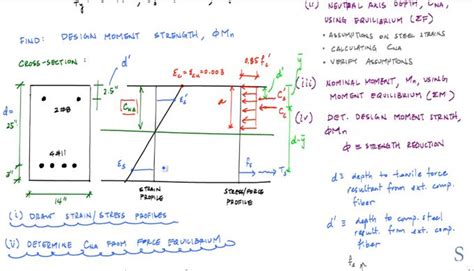 FIND: DESIGN MOMENT STRENGTH, ϕMn
CROSS-SECTION:
d'
2.5"
2#8
d=
25"
4#11
3"
14"
εc = εcu = 0.003
0.85 f'c
d'
CNA
εs'
a
Cs
Cc
d-ȳ
εs
fs
Ts
STRAIN
PROFILE
STRESS/FORCE
PROFILE
(i) DRAW STRAIN/STRESS PROFILES
(ii) DETERMINE CNA FROM FORCE EQUILIBRIUM
(ii) NEUTRAL AXIS DEPTH, CNA,
USING EQUILIBRIUM (ΣF)
- ASSUMPTIONS ON STEEL STRAINS
- CALCULATING CNA
- VERIFY ASSUMPTIONS
(iii) NOMINAL MOMENT, Mn, USING
MOMENT EQUILIBRIUM (ΣM)
(iv) DET. DESIGN MOMENT STRNTH,
ϕMn
ϕ = STRENGTH REDUCTION
d = depth to tensile force
resultant from ext. comp.
fiber
d' = depth to comp. steel
result. from ext. comp.
fiber
S